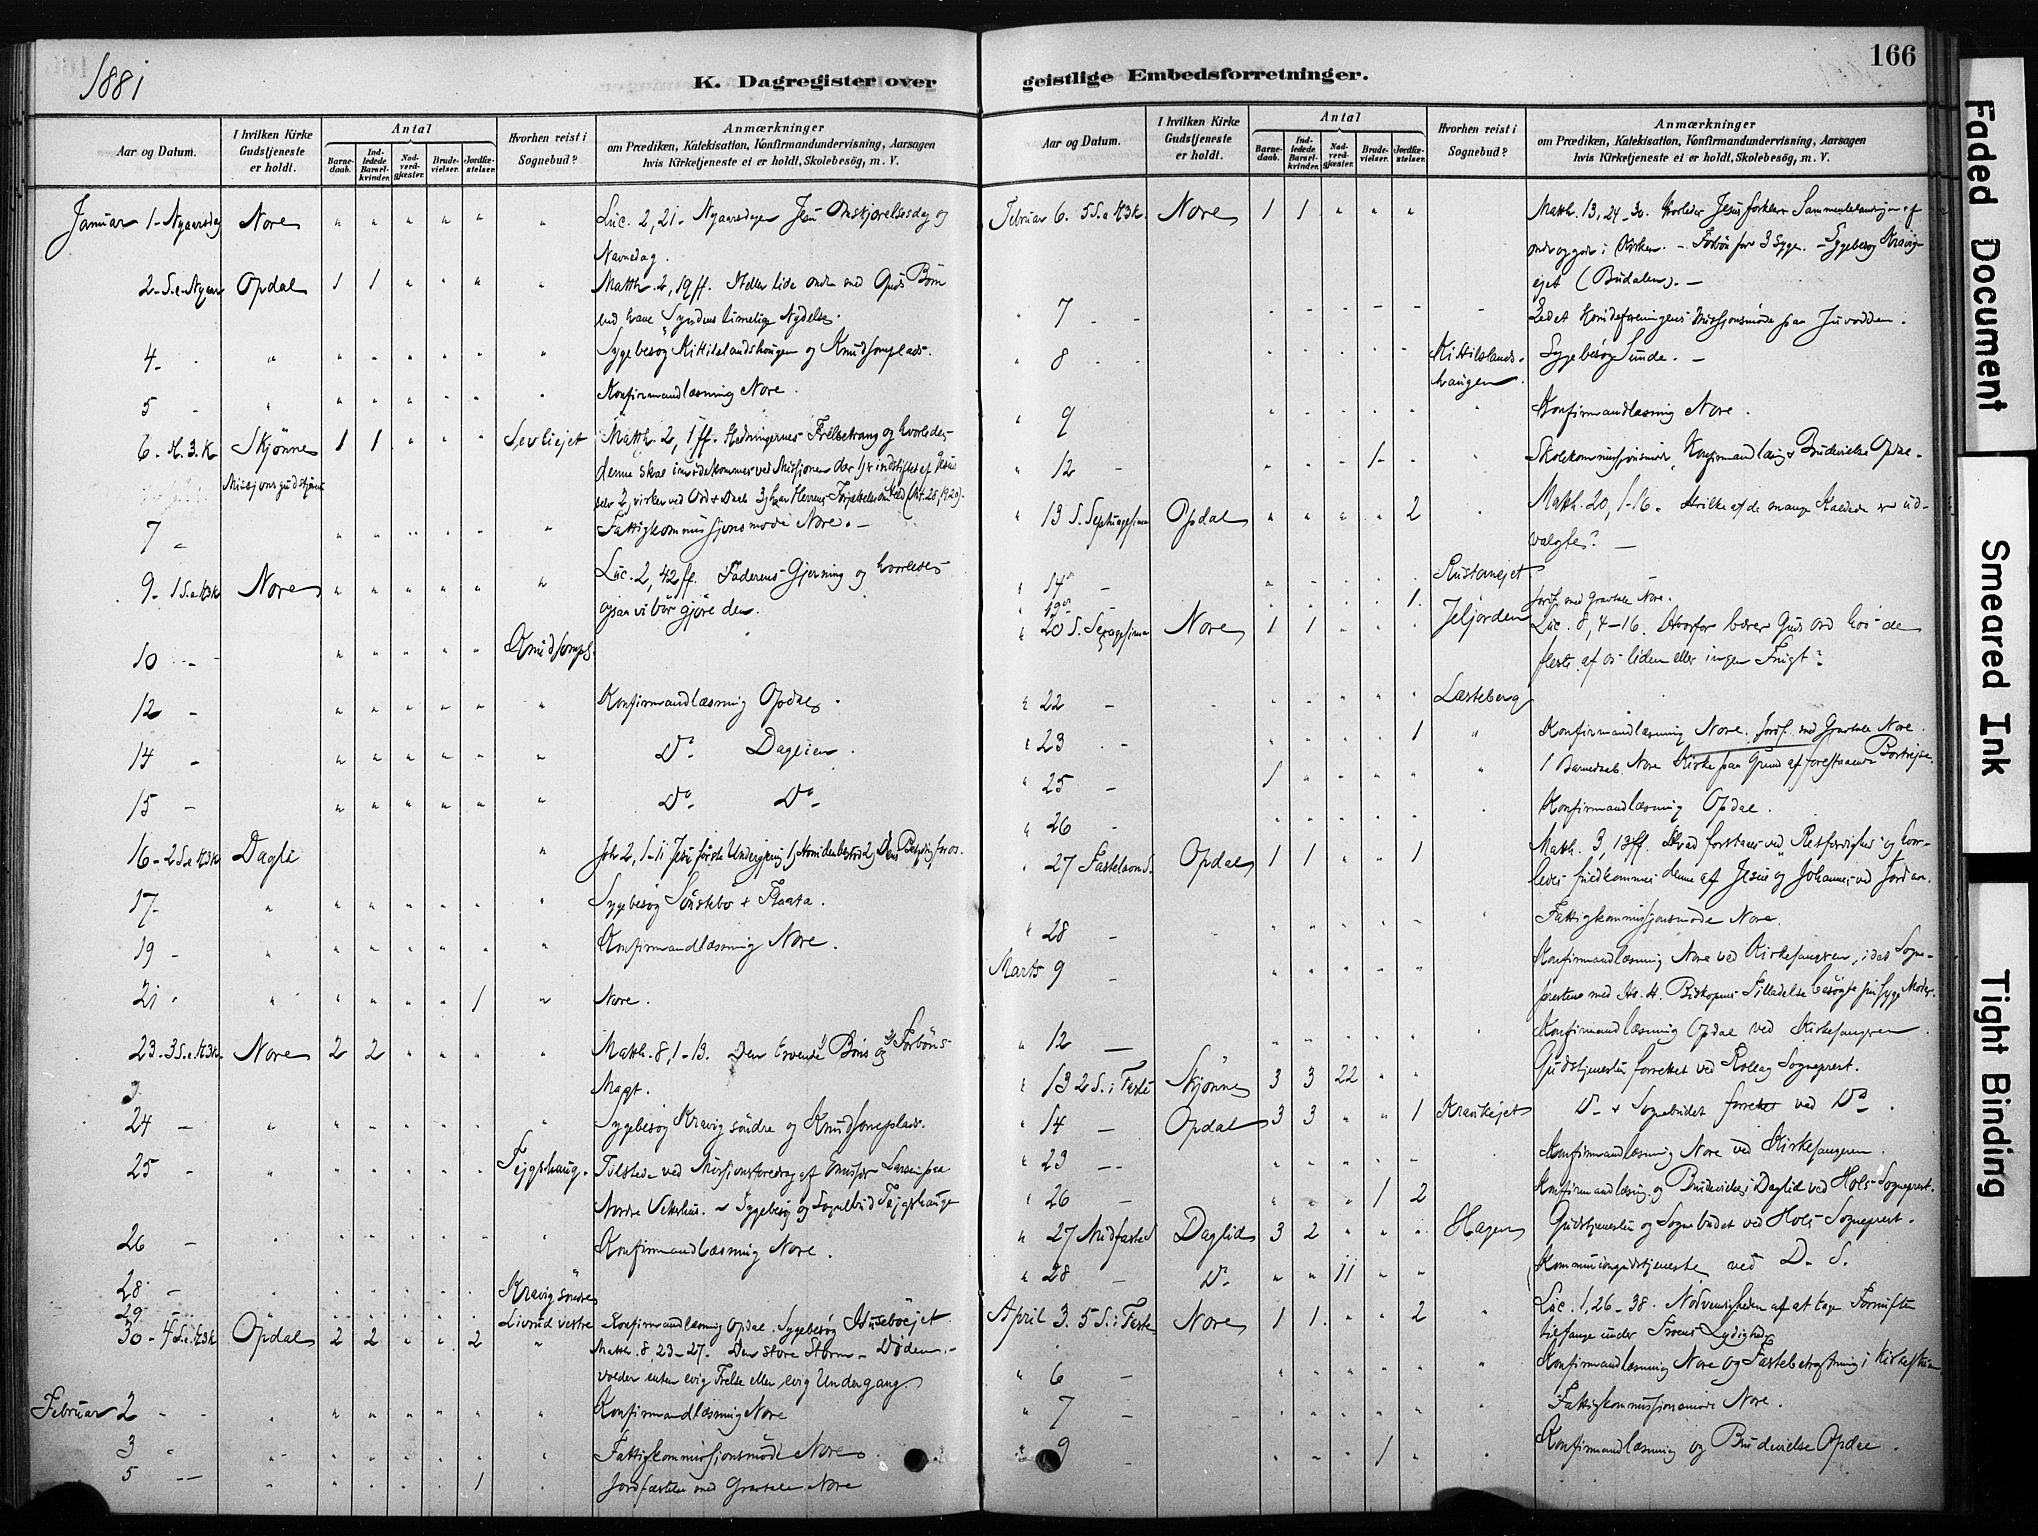 1881
K. Dagregister over
Aar og Datum.
I hvilken Kirke Gudstjeneste er holdt.
Antal
Barnedaab.
Indledede Barselkvinder.
Nadverdgjæster.
Brudevielser.
Jordfæstelser.
Hvorhen reist i Sognebud?
Anmærkninger
om Prædiken, Katekisation, Konfirmandundervisning, Aarsagen
hvis Kirketjeneste ei er holdt, Skolebesøg, m. V.
Januar 1 - Nyaarsdag Nore " " " " " " Luc. 2, 21. Nyaarsdagen Jesu Omskjærelsesdag og
Navnedag.
2 - S. e. Nyaar Opdal 1 1 " " " " Matth. 2, 19 ff. Heller lide ondt med Guds Børn
end have Syndens timelige Nydelse.
4 - " " " " " " " Sygebesøg Kittilslandshougen og Knudsonsplads.
5 - " " " " " " " Konfirmandlæsning Nore.
6 - H. 3. K Skjønne 1 1 " " " Sevliejet Matth. 2, 1 ff. Hedningernes Frelsetrang og hvorledes
Missjonsgudstjeneste denne skal imødekommes ved Missjonen der 1) er indstiftet af Jesus
selv 2) virker ved Ord & Daab 3) har Herrens Forjættelse
7 - " " " " " " Fattigkommissjonsmøde Nore. -
9 - 1 S. e. H3K Nore " " " " " " Luc. 2, 42 ff. Faderens Gjerning og hvorledes
ogsaa vi bør gjøre den.
10 - " " " " " Knudsonpl.
12 - " " " " " " Konfirmandlæsning Opdal.
14 - " " " " " " Do Daglien.
15 - " " " " " " Do Do
16 - 2 S. e. H3K Dagli " Joh. 2, 1-11 Jesu første Undergjerning
17 - " " " " " " " Sygebesøg Sønstebø & Flaata.
19 - " " " " " " " Konfirmandlæsning Nore.
21 " " " " " " 1 " Nore.
23 - 3 S. e. H3K. Nore 2 2 " " " " Matth. 8, 1-13. Den troende 1) Bøns og 2) Forbøns
Magt.
24 - " " " " " " " Sygebesøg Kravig søndre og Knudsonsplads.
25 - " " " " " " Fejgshaug. Tilstede ved Missjonsforedrag af Larsen paa
Nordre - Sygebesøg og Sognebud Fejgshauge
26 - " " " " " " " Konfirmandlæsning Nore.
28 - " " " " " " Kravig søndre
29 " " " " " " Livrud vestre Konfirmandlæsning Opdal. Sygebesøg
30 - 4 S. e. H3K Opdal 2 2 " " 2 " Matth. 8, 23-27. Den store Storm - Døden -
volder enten evig Frelse eller evig Undergang.
Februar 2 - " " " " " " " Konfirmandlæsning Nore
3 " " " " " " " " Fattigkommissjonsmøde Nore
5 - " " " " " 1 " Jordfæstelse med Gravtale Nore
geistlige Embedsforretninger.
166
Aar og Datum.
I hvilken Kirke Gudstjeneste er holdt.
Antal
Barnedaab.
Indledede Barselkvinder.
Nadverdgjæster.
Brudevielser.
Jordfæstelser.
Hvorhen reist i Sognebud?
Anmærkninger
om Prædiken, Katekisation, Konfirmandundervisning, Aarsagen
hvis Kirketjeneste ei er holdt, Skolebesøg, m. V.
Februar 6. 5 S. e H3K. Nore 1 1 " " " Matth. 13, 24-30. Hvorledes Jesus forklarer Sammenblandingen af
onde og gode i Kirken. - Forbøn for 3 Syge. - Sygebesøg Kravig-
ejet (Budalen). -
" 7 - - " " - - - - Ledet Kvindeforeningens Missjonsmøde paa Juvodden.
" 8 - - " " " " - Kittilslands- Sygebesøg Sunde. -
haugen.
" 9 " " " " " " Konfirmandlæsning Nore.
" 12 - " " " 1 - " Skolekommissjonsmøde, Konfirmandlæsn. & Brudevielse Opdal.
" 13 S. Septuagesima Opdal " " " " 2 " Matth. 20, 1-16. Hvilke af de mange Kaldede er ud-
valgte? -
" 14 - " " " " " Rustanejet -
" 19 " " " " 1. Jordf. med Gravtale Nore.
" 20 S. Sexagesima Nore 1 1 " " " Jeljorden Luc. 8, 4-16. Hvorfor bærer Guds ord hos de
fleste af os liden eller ingen Frugt?
" 22 - " " " " " Læsteberg
" 23 - " " " " 1 " Konfirmandlæsning Nore. Jordf. med Gravtale Nore.
" 25 - 1 " " " " " 1 Barnedaab Nore Kirke paa Grund af forestaaende Bortrejse.
" 26 " " " " " " Konfirmandlæsning Opdal.
" 27 Fastelavns. Opdal 1 1 " " 1 Matth. 3, 13 ff. Hvad forstaaes ved "Retfærdighed" og hvor-
ledes denne af Jesus og Johannes ved Jordan.
" 28 - " " " " " " Fattigkommissjonsmøde Nore.
Marts 9 - " " " " " Konfirmandlæsning Nore ved Kirkesangeren, idet Sogne-
presten med Hs. H. Biskopens Tilladelse besøgte sin syge Moder.
" 12 - " " " " " " Konfirmandlæsning Opdal ved Kirkesangeren.
" 13 2 S. i Faste Skjønne 3 3 22 " " Gudstjenesten forrettet ved Rollag Sogneprest.
" 14 - Opdal 3 3 " " 1 Kravikejet Do & Sognebudet forrettet ved Do.
" 23 - - " " " " - Konfirmandlæsning Nore ved Kirkesangeren.
" 26 - " " " 1 2 Konfirmandlæsn. og Brudevielse Daglid ved Hols Sogneprest.
" 27 Midfaste S. Daglid 3 2 " " " Hagen Gudstjenesten og Sognebudet ved Hols Sogneprest.
" 28 - Do " " 11 " " Kommuniongudstjeneste ved D. S.
April 3. 5 S. i Faste Nore 1 1 " " 2 " Luc. 1, 26-38. Nødvendigheden af at tage Fornuften
tilfange under Troens Lydighed.
" 6 - " " " " " Konfirmandlæsning Nore og Fastebetragtning i Kirkestuen
" 7 - - " " " " " " Fattigkommissjonsmøde Nore.
" 9 - " " " 1 " " Konfirmandlæsning og Brudevielse Opdal.
Faded Document
Smeared Ink
Tight Binding